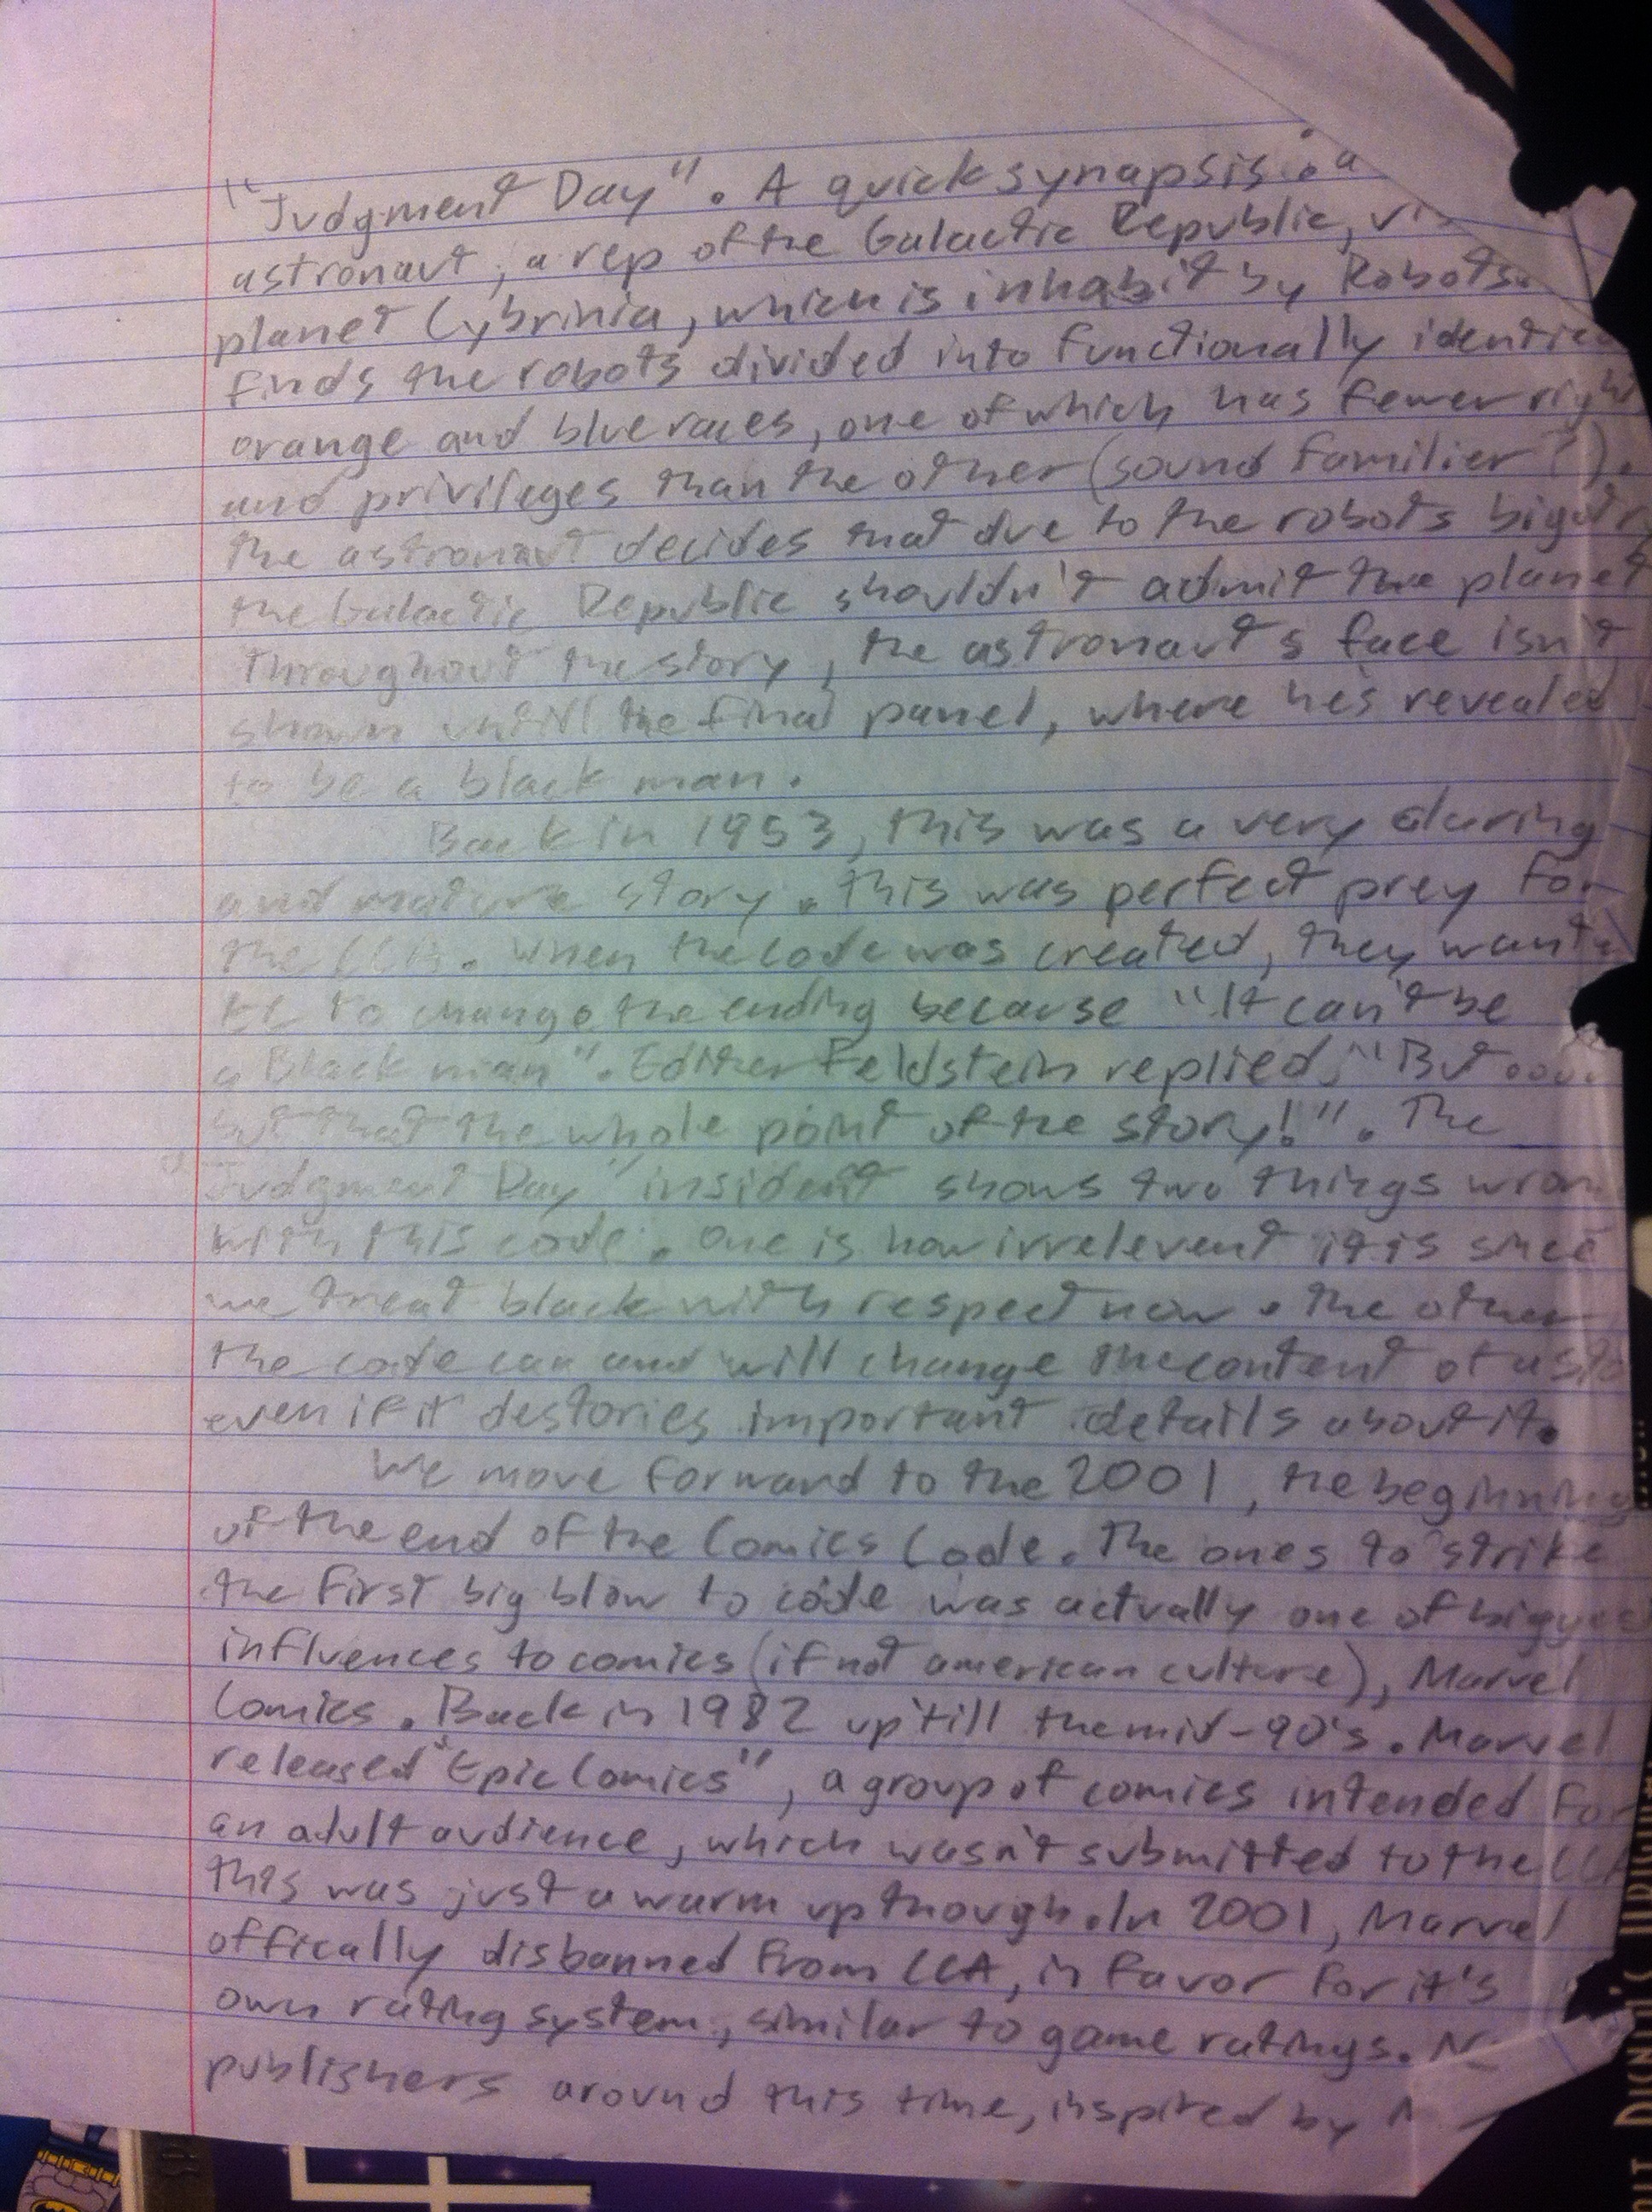 "Judgment Day". A quick synapsis: a
astronaut, a rep of the Galactic Republic,
planet Cybrinia, which is inhabit by Robots.
finds the robots divided into functionally
orange and blue races, one of which has fewer
and privileges than the other (sound familier?).
the astronaut decides that due to the robots
the Galactic Republic shouldn't admit the planet
Throughout the story, the astronaut's face isn't
shown untill the final panel, where he's revealed
to be a black man.
Back in 1953, this was a very daring
and mature story. This was perfect prey for
the CCA. When the code was created, they
EC to change the ending because "It can't be
a Black man". Editer Feldstein replied, "But....
but that the whole point of the story!". The
"Judgment Day" insident shows two things
with this code. One is how irrelevent it is since
we treat black with respect now. The other
the code can and will change the content of a
even if it destories important details about it.
We move forward to the 2001, the beginning
of the end of the Comics Code. The ones to strike
the first big blow to code was actually one of
influences to comics (if not american culture), Marvel
Comics. Back in 1982 up till the mid-90's. Marvel
released "Epic Comics", a group of comics intended for
an adult audience, which wasn't submitted to the CCA
this was just a warm up though. In 2001, Marvel
offically disbanned from CCA, in favor for it's
own rating system, similar to game ratings.
publishers around this time, inspired by